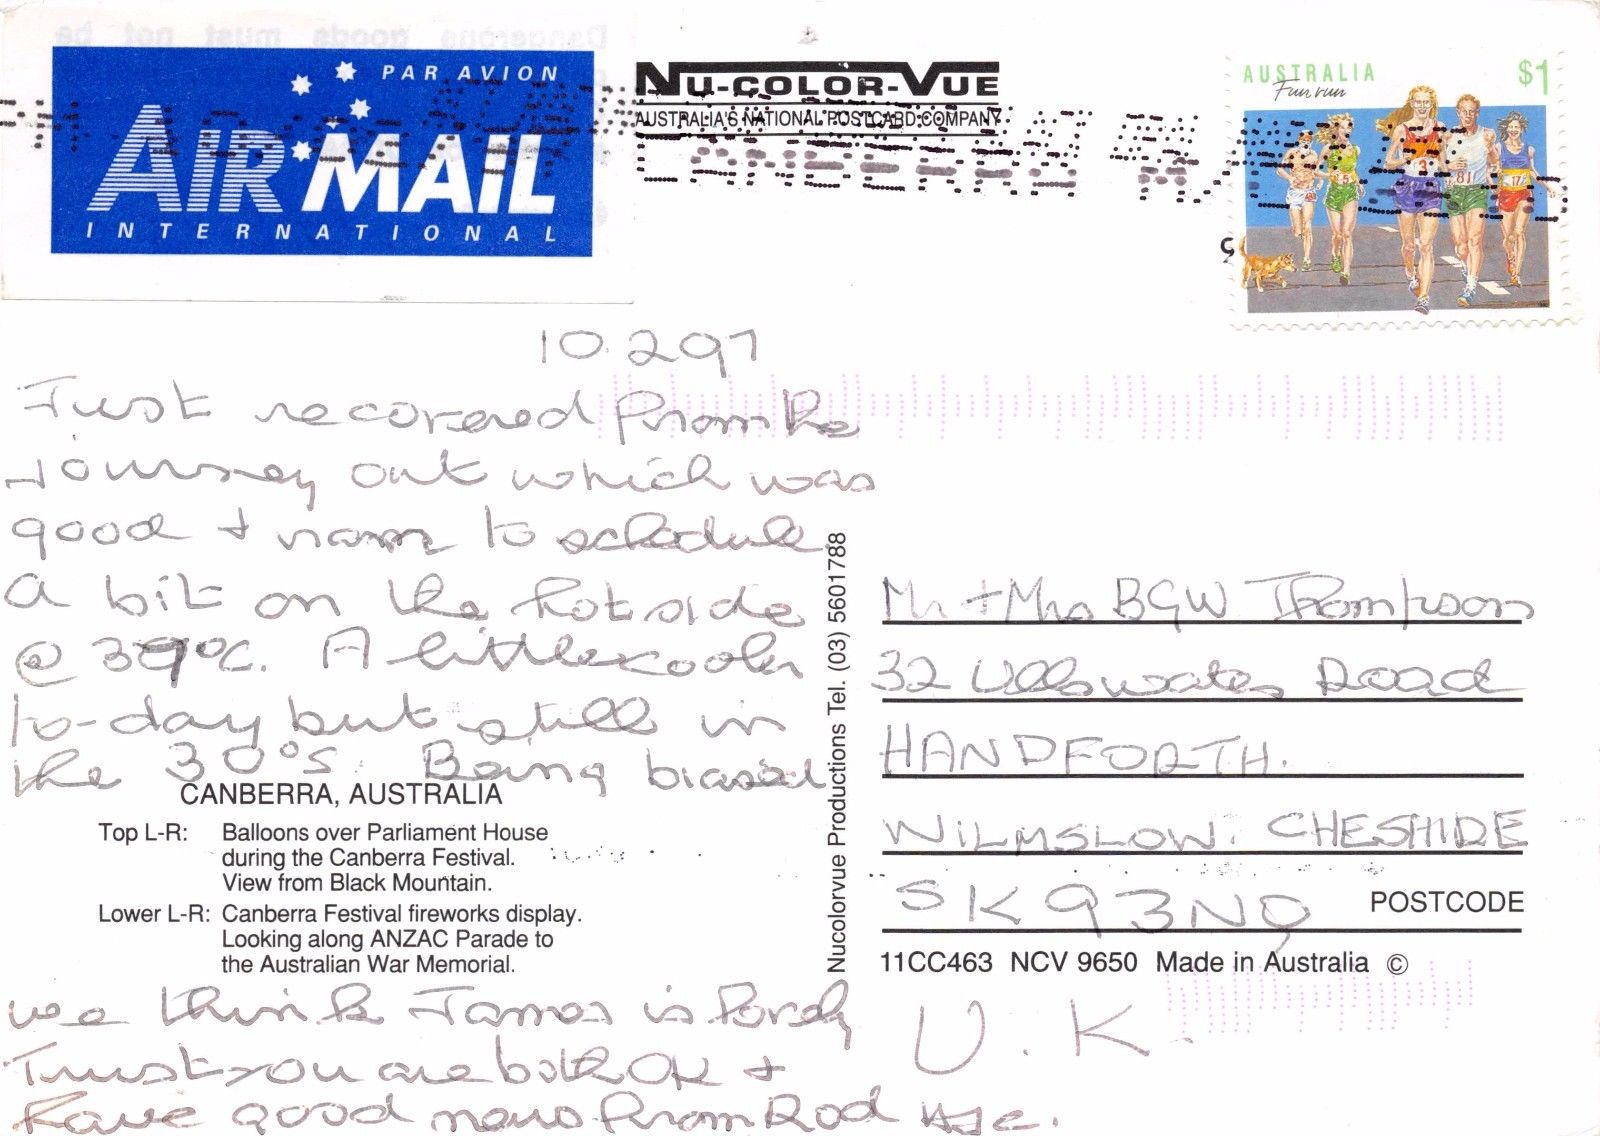 PAR AVION
AIR MAIL
INTERNATIONAL
NU-COLOR-VUE
AUSTRALIA'S NATIONAL POSTCARD COMPANY
CANBERRA
AUSTRALIA
Fun run
$1
10.2.97
Just recovered from the
journey out which was
good + ran to schedule.
A bit on the hot side
@ 39°C. A little cooler
to-day but still in
the 30°s. Being biased
CANBERRA, AUSTRALIA
Top L-R: Balloons over Parliament House
during the Canberra Festival.
View from Black Mountain.
Lower L-R: Canberra Festival fireworks display.
Looking along ANZAC Parade to
the Australian War Memorial.
we think James is lovely
Trust you are both OK +
have good news from Rod
Nucolorvue Productions Tel. (03) 5601788
Mr + Mrs BGW Thompson
32 Ullswater Road
HANDFORTH.
WILMSLOW. CHESHIRE
SK9 3NQ
POSTCODE
11CC463 NCV 9650 Made in Australia ©
U.K.